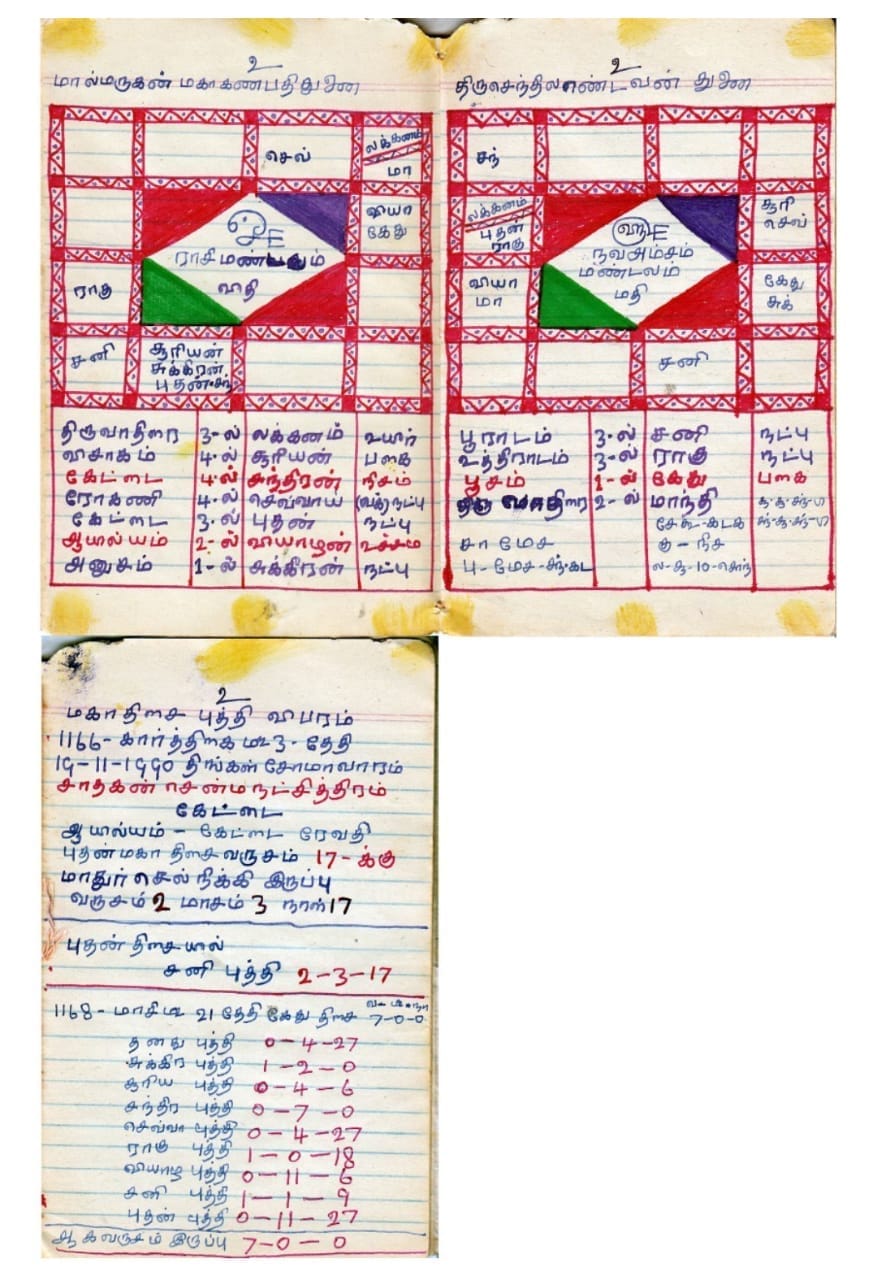 உ
மால்மருகன் மகாகணபதி துணை
செல்
லக்கனம்
மா
வியா
கேது
ராசி மண்டலம்
மதி
ராகு
சனி
சூரியன்
சுக்கிரன்
புதன்-சந்
திருவாதிரை 3-ல் லக்கனம்
விசாகம் 4-ல் சூரியன் பகை
கேட்டை 4-ல் சந்திரன் நிசம்
ரோகணி 4-ல் செவ்வாய் (வக்) நட்பு
கேட்டை 3-ல் புதன் நட்பு
ஆயால்யம் 2-ல் வியாழன் உச்சம்
அனுசம் 1-ல் சுக்கிரன் நட்பு
உ
திருசெந்திலஎண்டவன் துணை
சந்
லக்கனம்
புதன்
ராகு
சூரி
செவ்
நவஅம்சம்
மண்டலம்
மதி
வியா
மா
கேது
சுக்
சனி
பூராடம் 3-ல் சனி நட்பு
உத்திராடம் 3-ல் ராகு நட்பு
பூசம் 1-ல் கேது பகை
2-ல் மாந்தி
சா மேச கு - நீச
பு - மேச - சிங்-கட
உ
மகா திசை புத்தி விபரம்
1166- கார்த்திகை மீ 3- தேதி
19-11-1990 திங்கள் சோமாவாரம்
சாதகன் சென்ம நட்சித்திரம்
கேட்டை
ஆயால்யம் - கேட்டை ரேவதி
புதன் மகா திசை வருசம் 17-க்கு
மாதுர் செல் நீக்கி இருப்பு
வருசம் 2 மாசம் 3 நாள் 17
புதன் திசையால்
சனி புத்தி 2-3-17
1168- மாசி மீ 21 தேதி கேது திசை 7-0-0
தனது புத்தி 0-4-27
சுக்கிர புத்தி 1-2-0
சூரிய புத்தி 0-4-6
சந்திர புத்தி 0-7-0
செவ்வா புத்தி 0-4-27
ராகு புத்தி 1-0-18
வியாழ புத்தி 0-11-6
சனி புத்தி 1-1-9
புதன் புத்தி 0-11-27
ஆக வருசம் இருப்பு 7-0-0